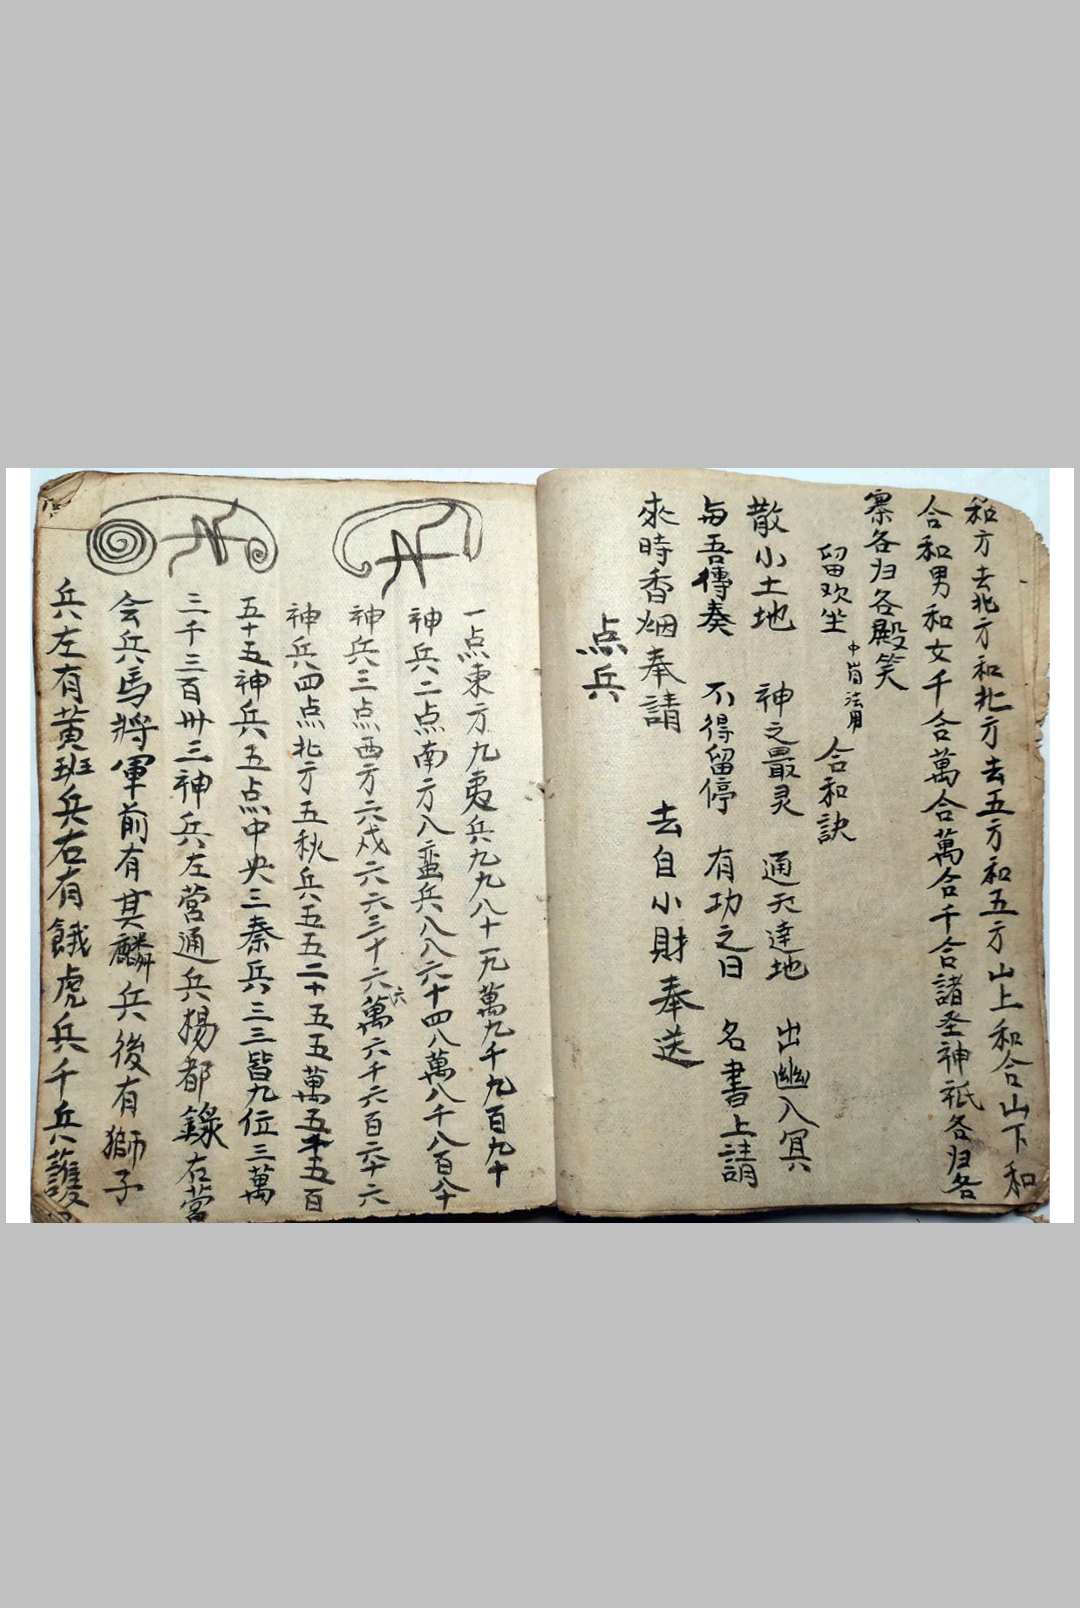 和方去北方和北方去五方和五方山上和合山下和
合和男和女千合萬合萬合千合諸圣神祇各归各
寨各归各殿笑
留欢坐 中皆法用 合和訣
散小土地 神之最灵 通天達地 出幽入冥
与吾傳奏 不得留停 有功之日 名書上請
來時香烟奉請 去自小財奉送
点兵
一点東方九夷兵九九八十一九萬九千九百九十
神兵二点南方八蛮兵八八六十四八萬八千八百八十
神兵三点西方六戎六六三十六六萬六千六百六十六
神兵四点北方五秋兵五五二十五五萬五千五百
五十五神兵五点中央三秦兵三三皆九位三萬
三千三百卅三神兵左营通兵揚都錄右营
会兵馬將軍前有其麟兵後有獅子
兵左有黄班兵右有餓虎兵千兵護